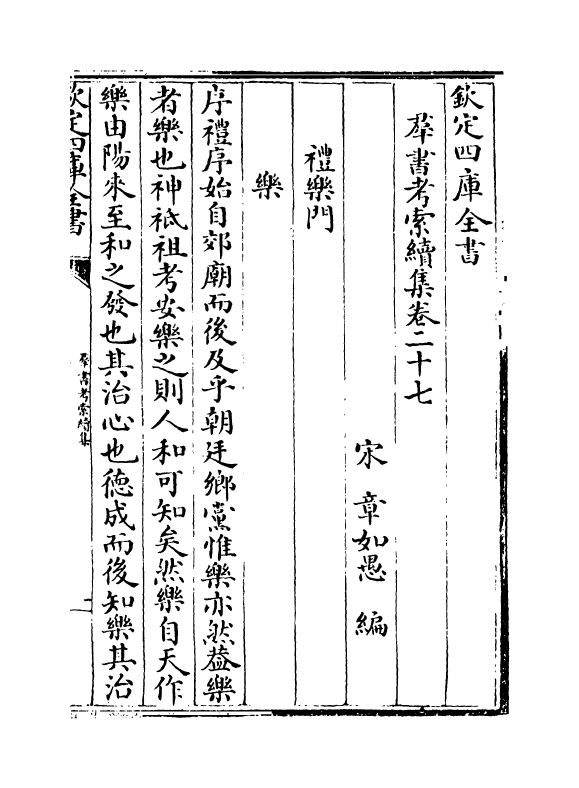 欽定四庫全書
羣書考索續集卷二十七
宋 章如愚 編
禮樂門
樂
序禮序始自郊廟而後及乎朝廷鄉黨惟樂亦然蓋樂
者樂也神祗祖考安樂之則人和可知矣然樂自天作
樂由陽來至和之發也其治心也德成而後知樂其治
欽定四庫全書
羣書考索續集
一